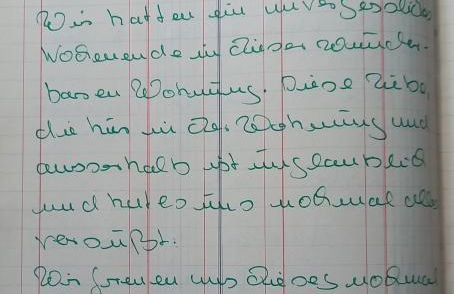 Wir hatten ein unvergessliches
Wochenende in dieser wunder-
baren Wohnung. Diese Liebe,
die hier in der Wohnung und
ausserhalb ist unglaublich
und hat es uns nochmal alles
versüßt.
Wir freuen uns dieses nochmal